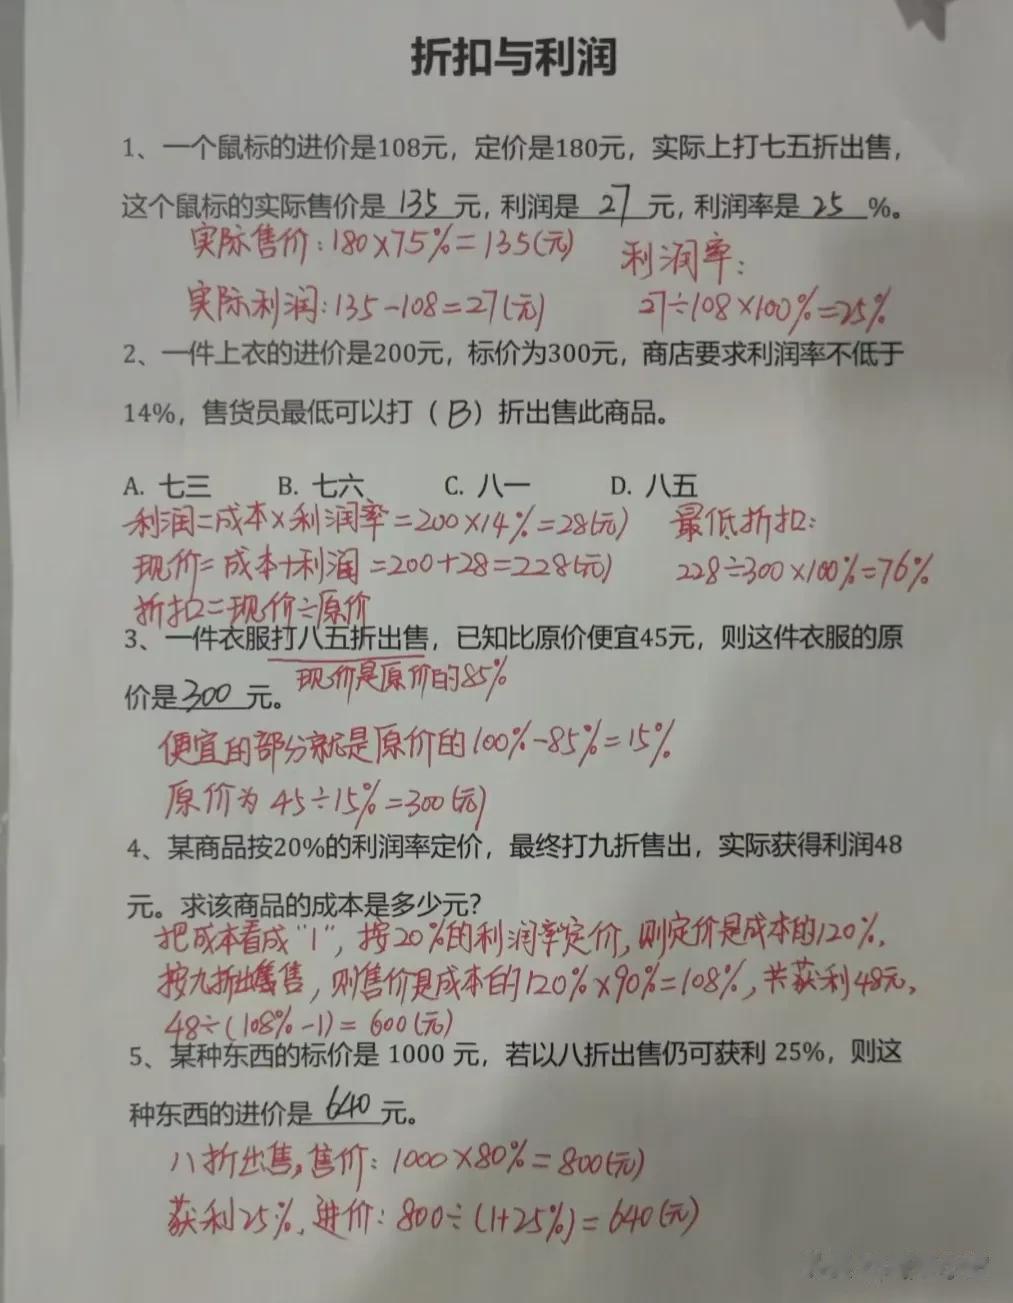 折扣与利润
1、一个鼠标的进价是108元，定价是180元，实际上打七五折出售，
这个鼠标的实际售价是 135 元，利润是 27 元，利润率是 25 %。
实际售价：180×75%=135(元) 利润率：
实际利润：135-108=27(元) 27÷108×100%=25%
2、一件上衣的进价是200元，标价为300元，商店要求利润率不低于
14%，售货员最低可以打（B）折出售此商品。
A. 七三 B. 七六 C. 八一 D. 八五
利润=成本×利润率=200×14%=28(元) 最低折扣：
现价=成本+利润=200+28=228(元) 228÷300×100%=76%
折扣=现价÷原价
3、一件衣服打八五折出售，已知比原价便宜45元，则这件衣服的原
现价是原价的85%
价是 300 元。
便宜的部分就是原价的100%-85%=15%
原价为 45÷15%=300(元)
4、某商品按20%的利润率定价，最终打九折售出，实际获得利润48
元。求该商品的成本是多少元？
把成本看成“1”，按20%的利润率定价，则定价是成本的120%.
按九折出售，则售价是成本的120%×90%=108%，共获利48元，
48÷(108%-1)=600(元)
5、某种东西的标价是 1000 元，若以八折出售仍可获利 25%，则这
种东西的进价是 640 元。
八折出售，售价：1000×80%=800(元)
获利25%，进价：800÷(1+25%)=640(元)